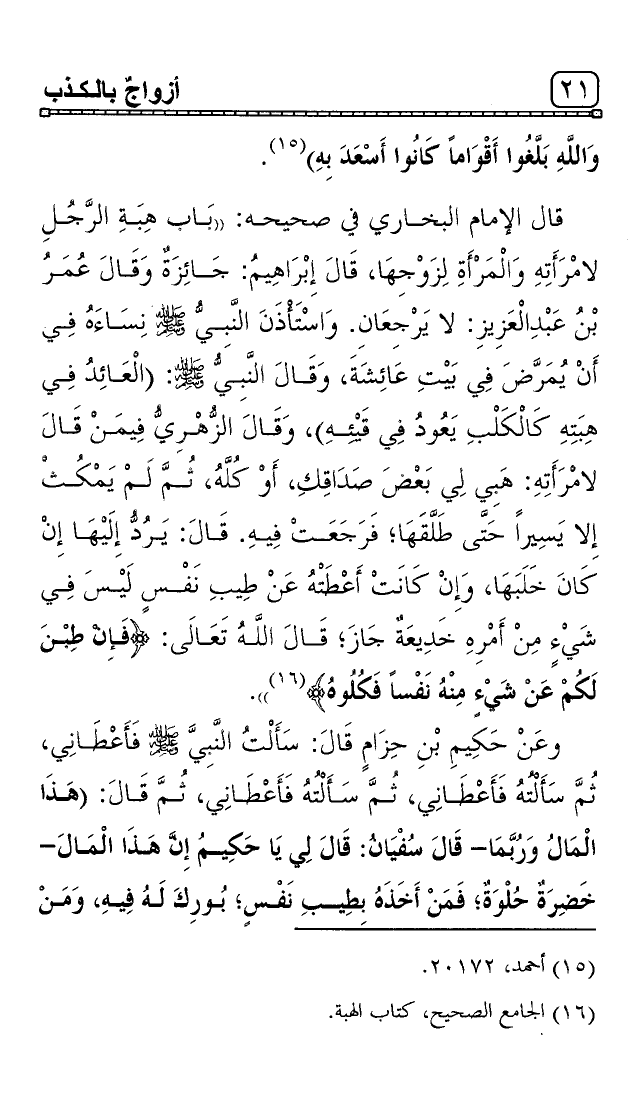 ٢١
أزواجٌ بالكذب
وَاللَّهِ بَلَّغُوا أَقْوَاماً كَانُوا أَسْعَدَ بِهِ)(١٥).
قال الإمام البخاري في صحيحه: ((بَاب هِبَةِ الرَّجُلِ
لامْرَأَتِهِ وَالْمَرْأَةِ لِزَوْجِهَا، قَالَ إِبْرَاهِيمُ: جَائِزَةٌ وَقَالَ عُمَرُ
بْنُ عَبْدِالْعَزِيزِ: لا يَرْجِعَانِ. وَاسْتَأْذَنَ النَّبِيُّ ﷺ نِسَاءَهُ فِي
أَنْ يُمَرَّضَ فِي بَيْتِ عَائِشَةَ، وَقَالَ النَّبِيُّ ﷺ: (الْعَائِدُ فِي
هِبَتِهِ كَالْكَلْبِ يَعُودُ فِي قَيْئِهِ)، وَقَالَ الزُّهْرِيُّ فِيمَنْ قَالَ
لامْرَأَتِهِ: هَبِي لِي بَعْضَ صَدَاقِكِ، أَوْ كُلَّهُ، ثُمَّ لَمْ يَمْكُثْ
إِلا يَسِيراً حَتَّى طَلَّقَهَا؛ فَرَجَعَتْ فِيهِ. قَالَ: يَرُدُّ إِلَيْهَا إِنْ
كَانَ خَلَبَهَا، وَإِنْ كَانَتْ أَعْطَتْهُ عَنْ طِيبِ نَفْسٍ لَيْسَ فِي
شَيْءٍ مِنْ أَمْرِهِ خَدِيعَةٌ جَازَ؛ قَالَ اللَّهُ تَعَالَى: ﴿فَإِنْ طِبْنَ
لَكُمْ عَنْ شَيْءٍ مِنْهُ نَفْساً فَكُلُوهُ﴾(١٦))).
وعَنْ حَكِيمِ بْنِ حِزَامٍ قَالَ: سَأَلْتُ النَّبِيَّ ﷺ فَأَعْطَانِي،
ثُمَّ سَأَلْتُهُ فَأَعْطَانِي، ثُمَّ سَأَلْتُهُ فَأَعْطَانِي، ثُمَّ قَالَ: (هَذَا
الْمَالُ وَرُبَّمَا– قَالَ سُفْيَانُ: قَالَ لِي يَا حَكِيمُ إِنَّ هَذَا الْمَالَ–
خَضِرَةٌ حُلْوَةٌ؛ فَمَنْ أَخَذَهُ بِطِيبِ نَفْسٍ؛ بُورِكَ لَهُ فِيهِ، وَمَنْ
(١٥) أحمد، ٢٠١٧٢.
(١٦) الجامع الصحيح، كتاب الهبة.